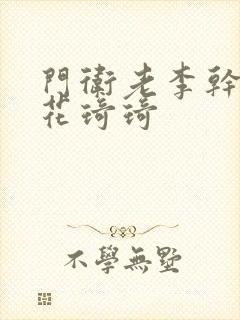 門衛老李幹
花琦琦
不學無墅